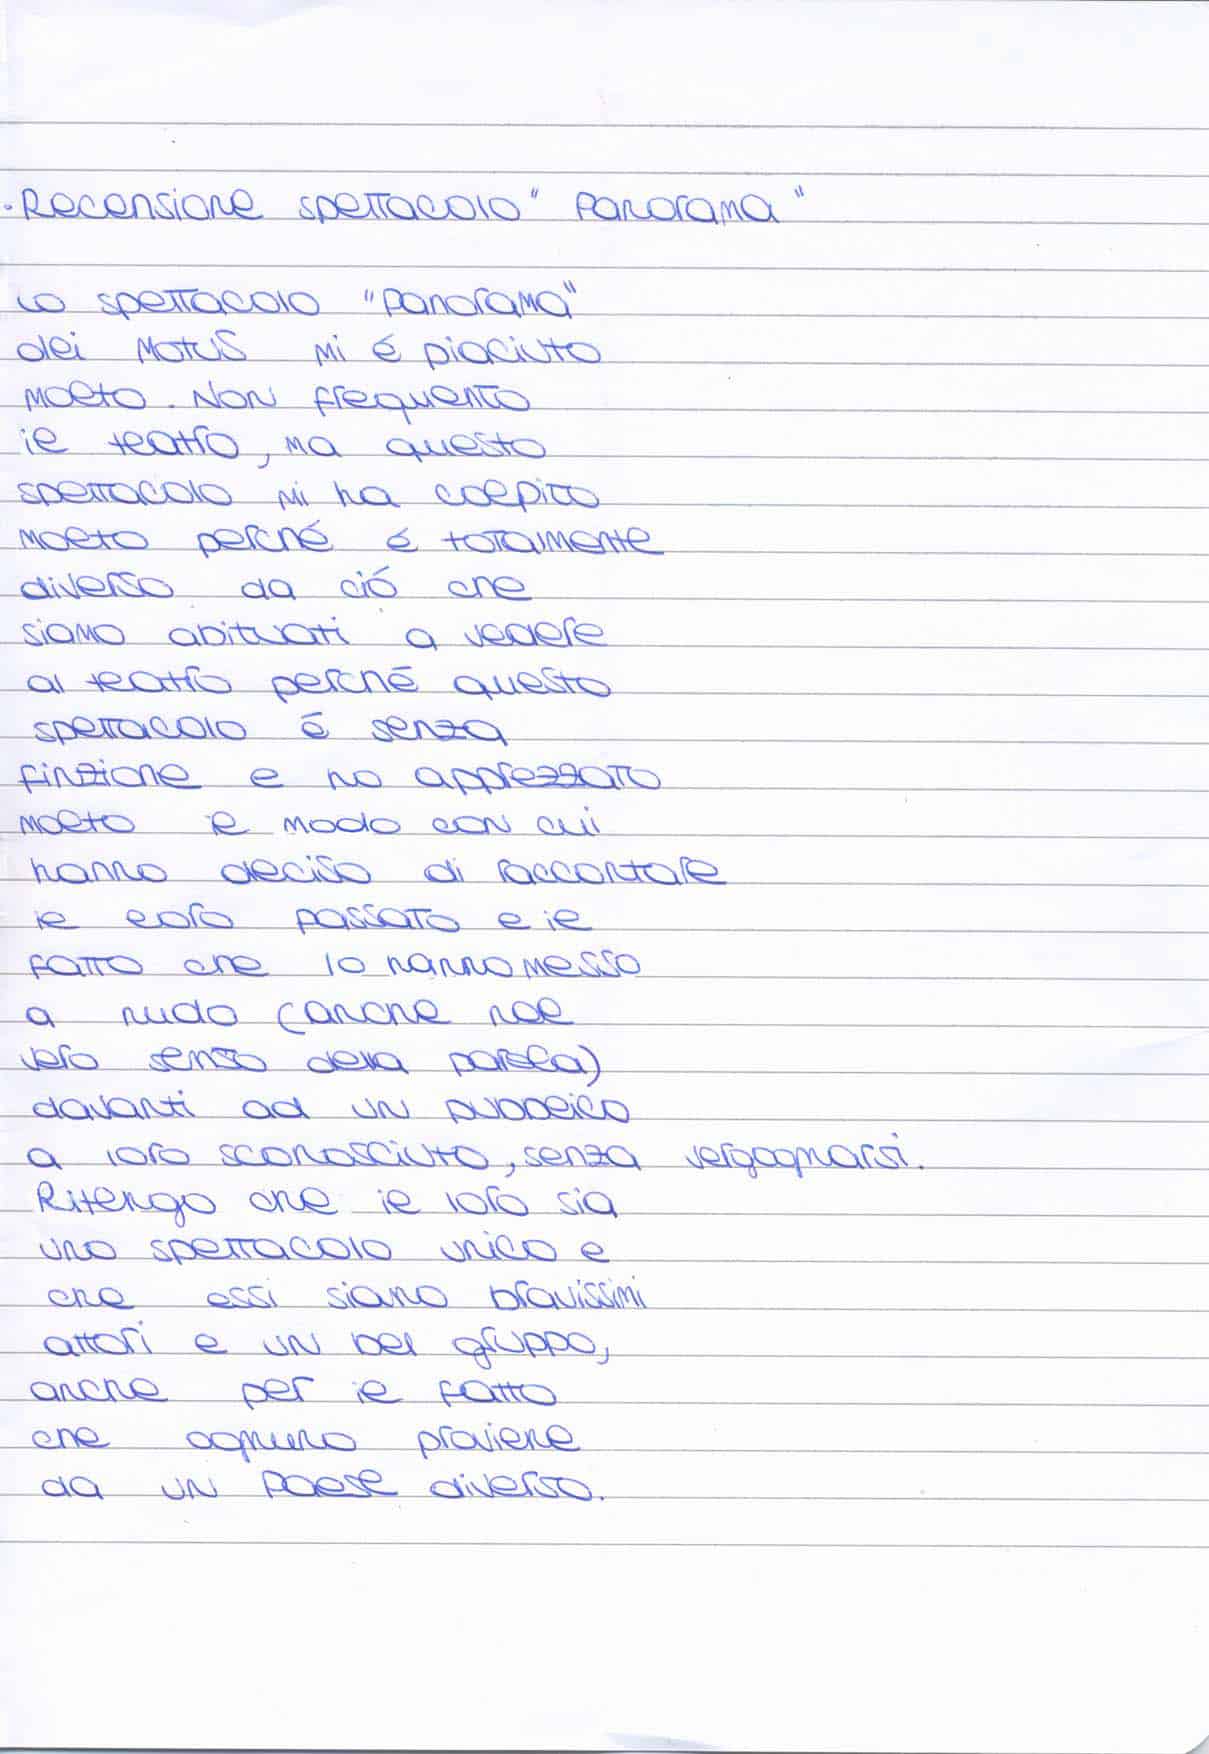 . Recensione spettacolo "Panorama"
Lo spettacolo "Panorama"
dei MOTUS mi é piaciuto
molto. Non frequento
il teatro, ma questo
spettacolo mi ha colpito
molto perché é totalmente
diverso da ció che
siamo abituati a vedere
al teatro perché questo
spettacolo é senza
finzione e ho apprezzato
molto il modo con cui
hanno deciso di raccontare
il loro passato e il
fatto che lo hanno messo
a nudo (anche nel
vero senso della parola)
davanti ad un pubblico
a loro sconosciuto, senza vergognarsi.
Ritengo che il loro sia
uno spettacolo unico e
che essi siano bravissimi
attori e un bel gruppo,
anche per il fatto
che ognuno proviene
da un paese diverso.